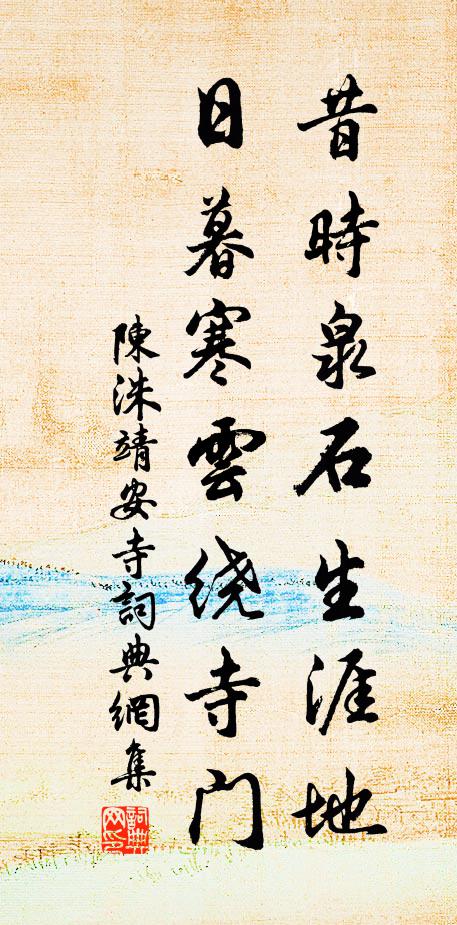 昔時泉石生涯地
日暮寒雲繞寺門
陳洙靖安寺詞典網集
詞典網印